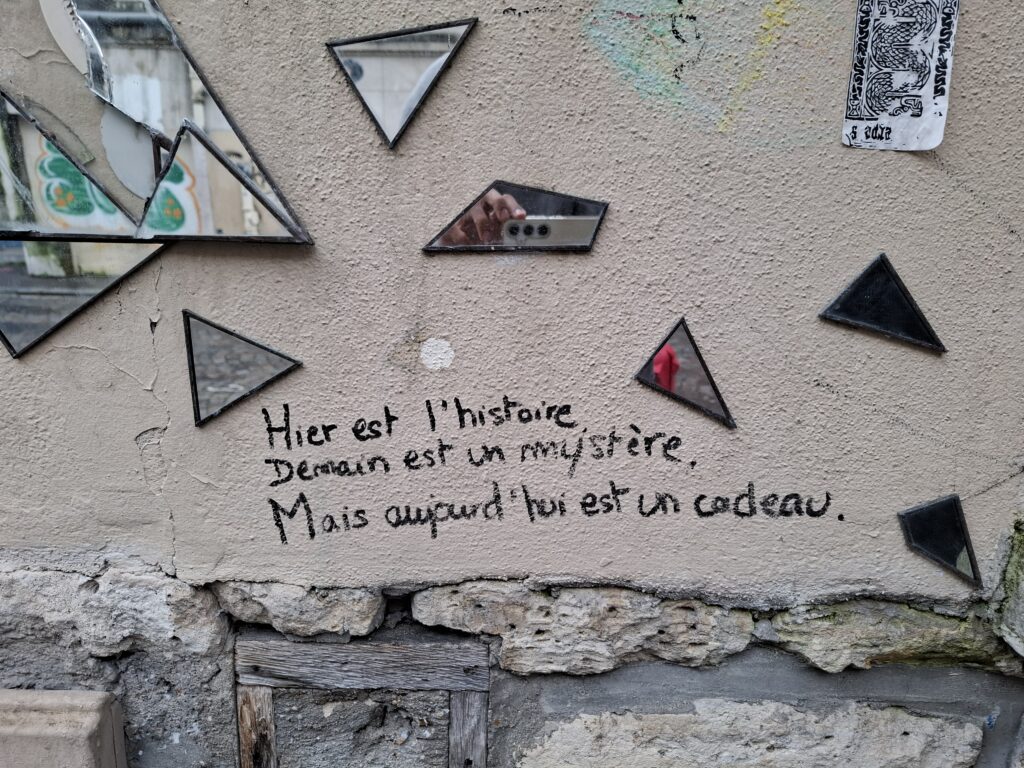 Hier est l'histoire,
Demain est un mystère.
Mais aujourd'hui est un cadeau.